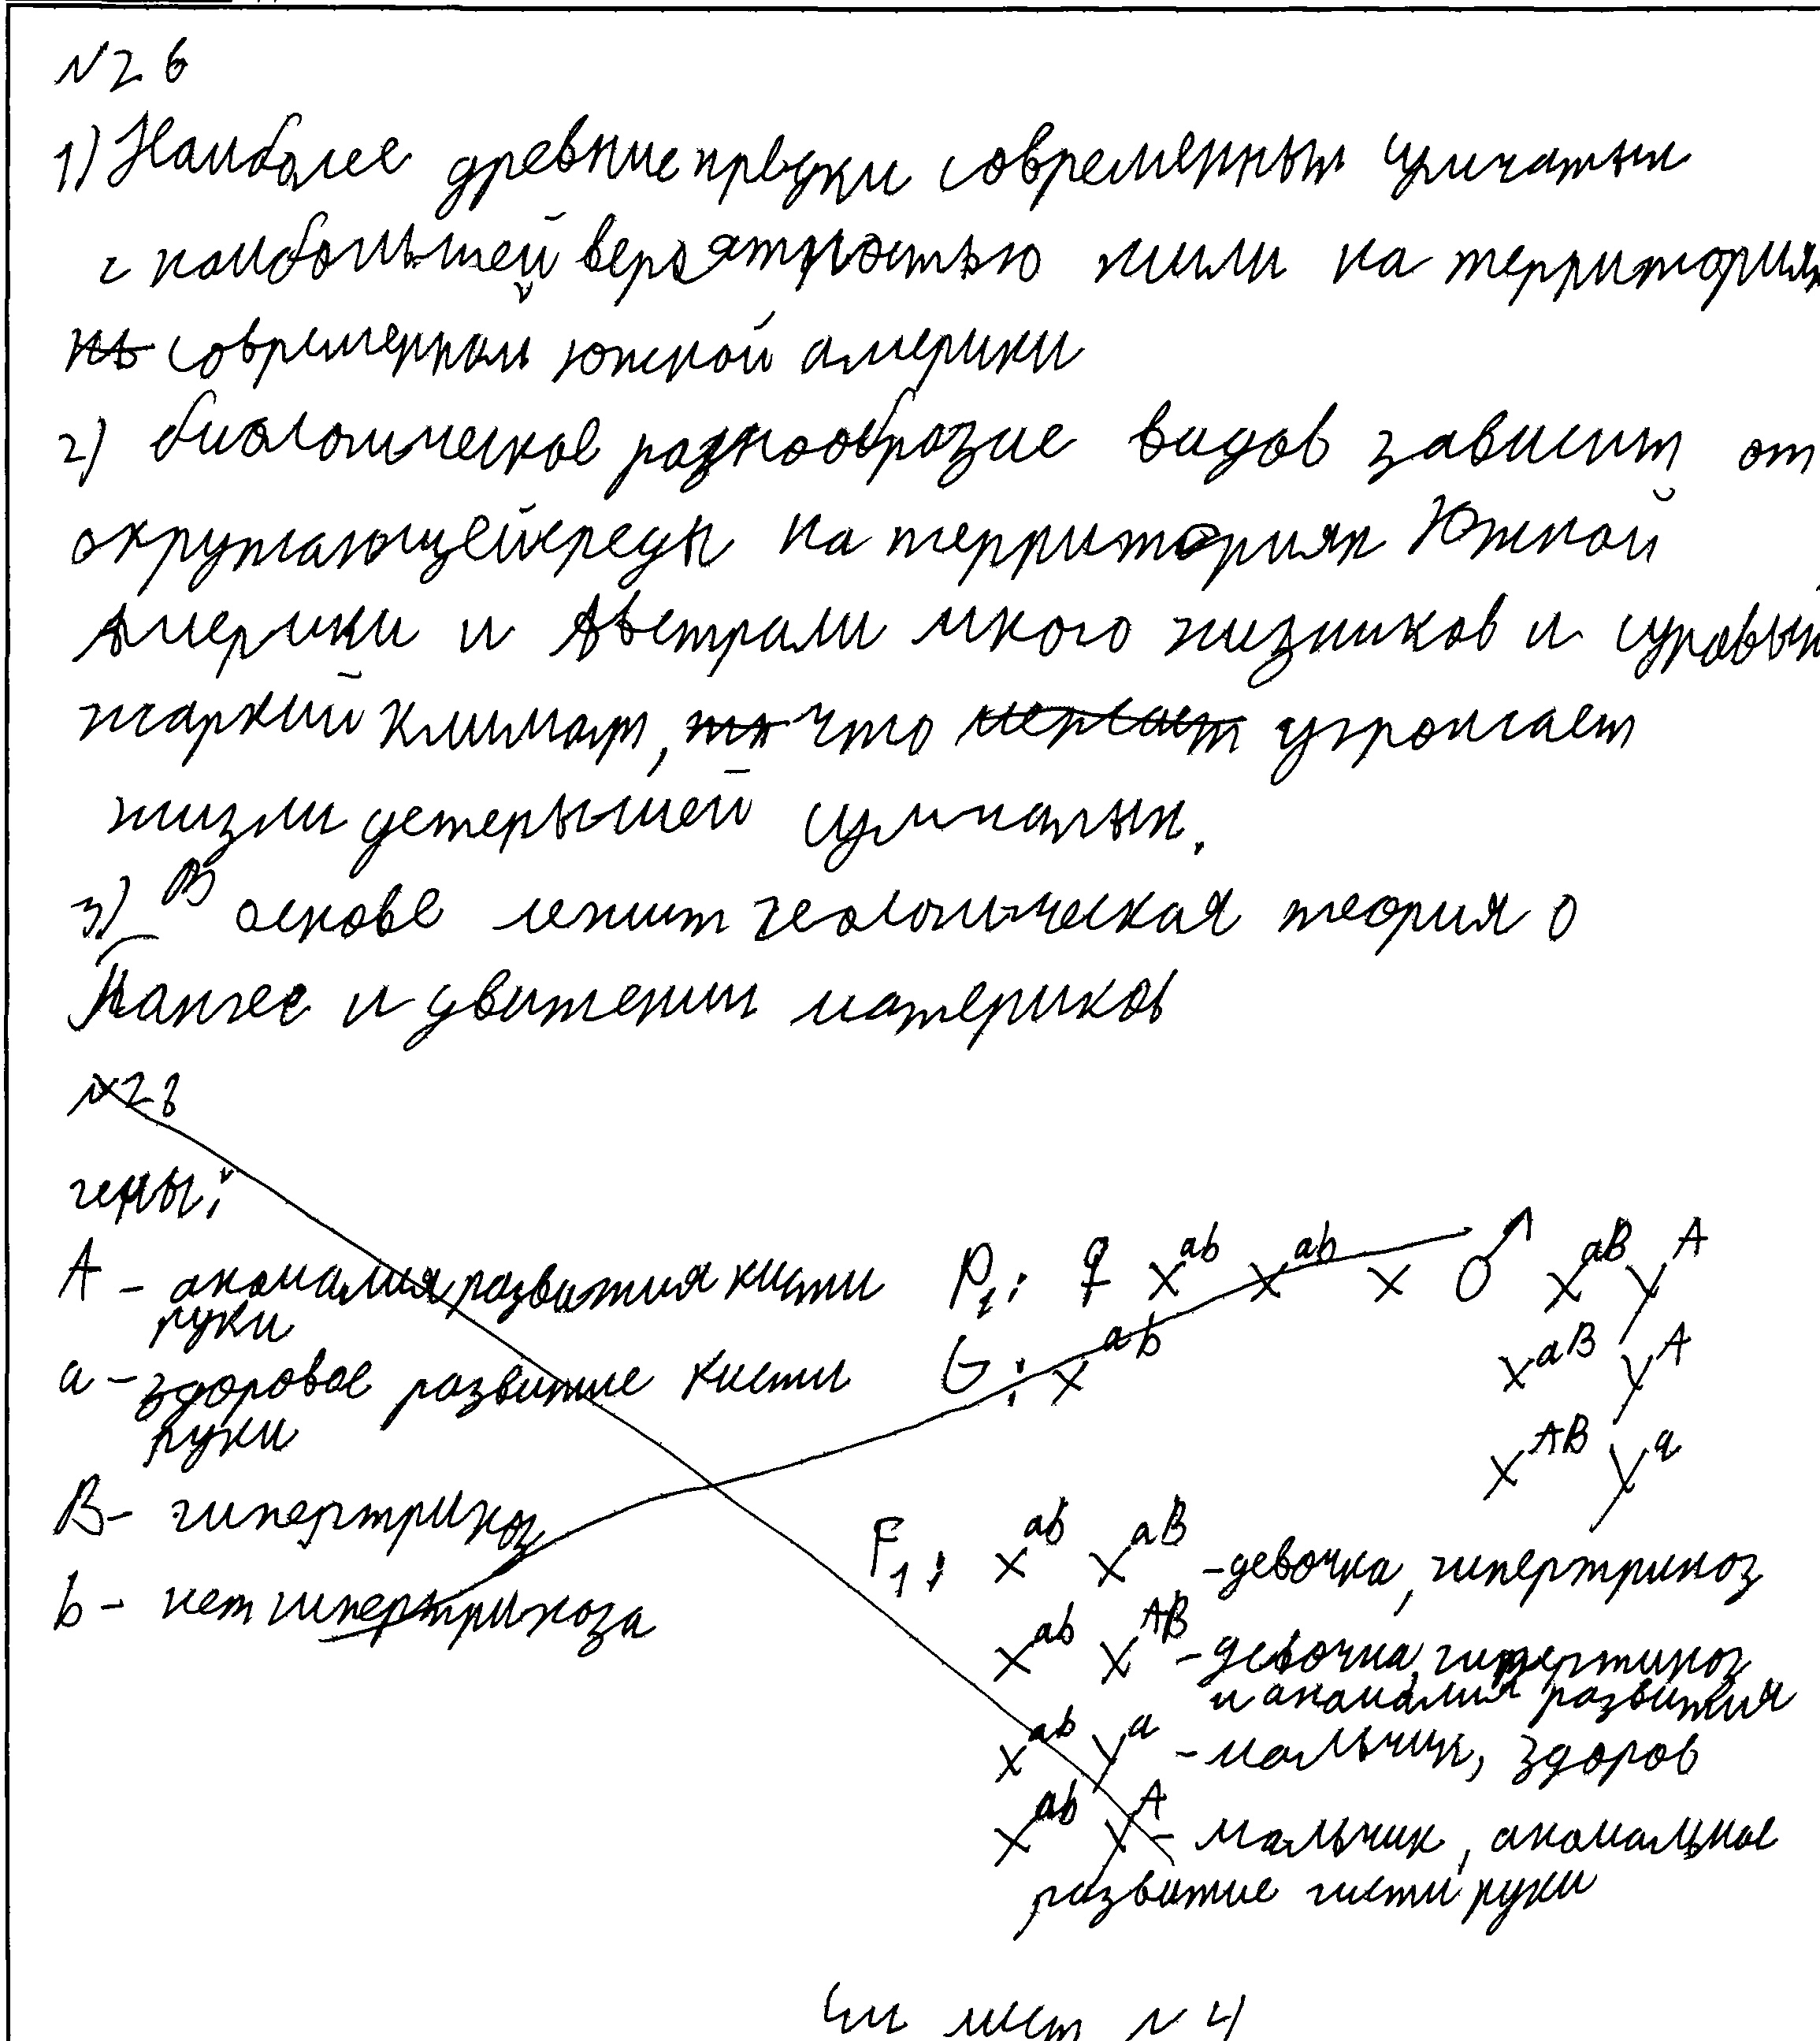 N26
1) Наиболее древние предки современных сумчатых
с наибольшей вероятностью жили на территориях
современной южной америки
2) биологическое разнообразие видов зависит от
окружающей среды на территориях Южной
Америки и Австрали много хизников и суровый
жаркий климат, что угрожает
жизли детерышей сумчатых.
3) В основе лежит геологическая теория о
Пангее и движении материков
N28
гены:
A - аномалия развития кисти
руки
a - здоровое развитие кисти
руки
B - гипертрихоз
b - нет гипертрихоза
P1: ♀ X^ab X^ab × ♂ X^aB Y^A
G: X^ab X^aB Y^A
X^AB Y^a
F1: X^ab X^aB - девочка, гипертрихоз
X^ab X^AB - девочка, гипертихоз
и аномалия развития
X^ab Y^a - мальчик, здоров
X^ab Y^A - мальчик, аномальное
развитие кисти руки
см лист N 4